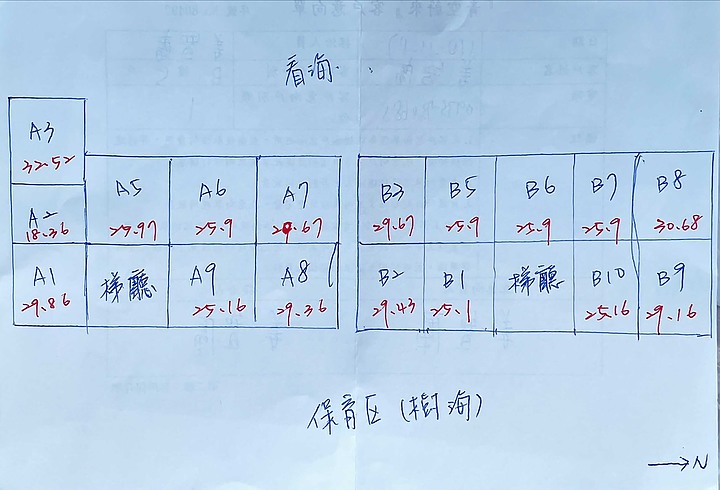 看海
A3
32.52
A5 A6 A7 B3 B5 B6 B7 B8
A2
18.36 25.97 25.9 29.67 29.67 25.9 25.9 25.9 30.68
A1 梯廳 A9 A8 B2 B1 梯廳 B10 B9
29.86 25.16 29.36 29.43 25.1 25.16 29.16
保育区(樹海)
→N